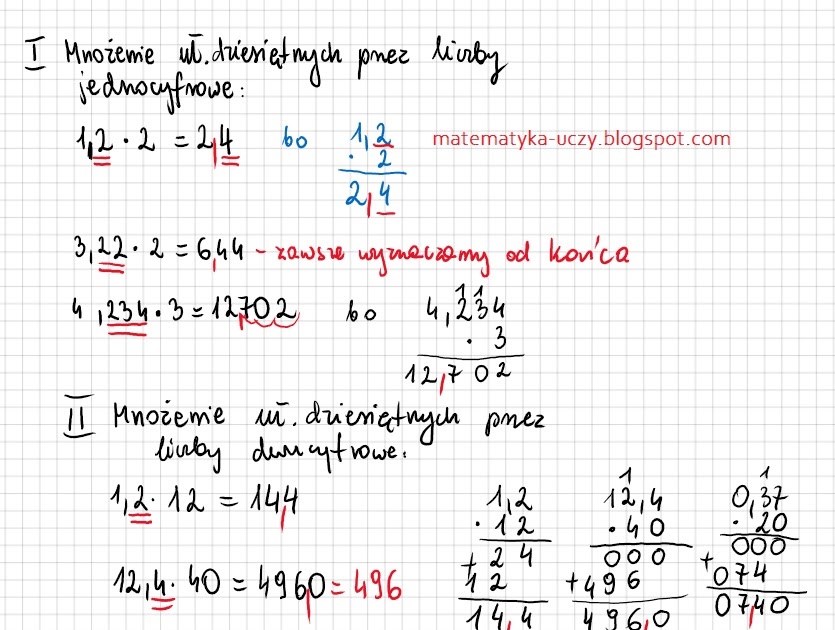 I Mnożenie uł. dziesiętnych przez liczby
jednocyfrowe:
1,2 · 2 = 2,4 bo 1,2
· 2
2,4
matematyka-uczy.blogspot.com
3,22 · 2 = 6,44 - zawsze wyznaczamy od końca
4,234 · 3 = 12,702 bo
1 1
4,234
· 3
12,702
II Mnożenie uł. dziesiętnych przez
liczby dwucyfrowe:
1,2 · 12 = 14,4
12,4 · 40 = 496,0 = 496
1,2
· 12
+ 2 4
1 2
14,4
1
12,4
· 40
000
+496
496,0
1
0,37
· 20
000
+ 074
07,40